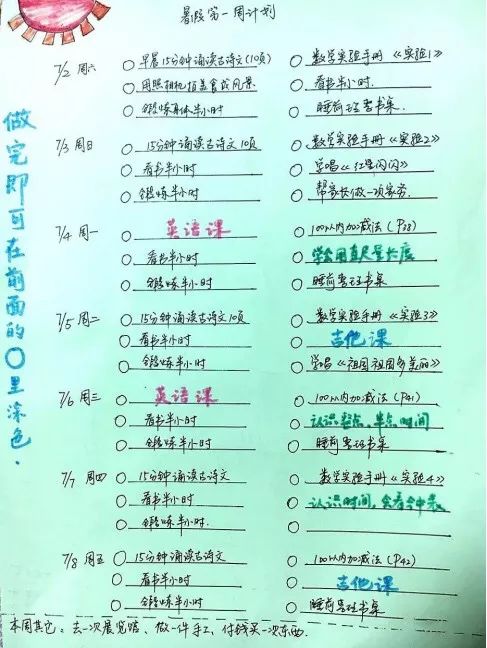 暑假第一周计划
做完即可在前面的○里涂色.
7/2 周六
早晨15分钟诵读古诗文(10页)
数学实验手册《实验1》
用照相机拍美食或风景
看书半小时.
锻炼身体半小时
睡前
书桌.
7/3 周日
15分钟诵读古诗文10页
数学实验手册《实验2》
看书半小时
学唱《红星闪闪》
锻炼半小时
帮家长做一项家务.
7/4 周一
英语课
100以内加减法(P38)
看书半小时
学会用直尺量长度
锻炼半小时
睡前
书桌
7/5 周二
15分钟诵读古诗文10页
数学实验手册《实验3》
看书半小时
吉他课
锻炼半小时
学唱《祖国祖国多美丽》
7/6 周三
英语课
100以内加减法(P41)
看书半小时
认识整点、半点时间
锻炼半小时
睡前
书桌
7/7 周四
15分钟诵读古诗文
数学实验手册《实验4》
看书半小时
认识时间,会看钟表
锻炼半小时.
7/8 周五
15分钟诵读古诗文
100以内加减法(P42)
看书半小时
吉他课
锻炼半小时
睡前
书桌
本周其它:去一次展览馆、做一件手工、付钱买一次东西.